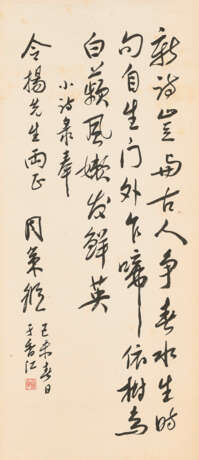 新詩豈與古人爭春水生時
句自生门外乍啼依樹鳥
白蘋風嫩发鮮英
小詩录奉
令揚先生兩正
周策縱
己未春日
于香江